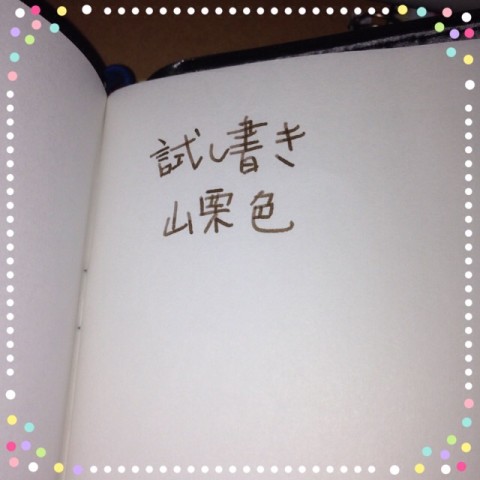 試し書き
山栗色